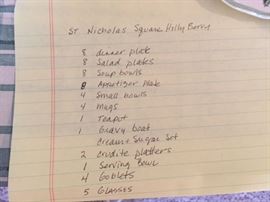 St. Nicholas Square Holly Berry
8 dinner plate
8 Salad plates
8 Soup bowls
8 Appetizer Plate
4 Small bowls
4 Mugs
1 Teapot
1 Gravy boat
Cream & Sugar Set
2 Crudite platters
1 Serving Bowl
4 Goblets
5 Glasses